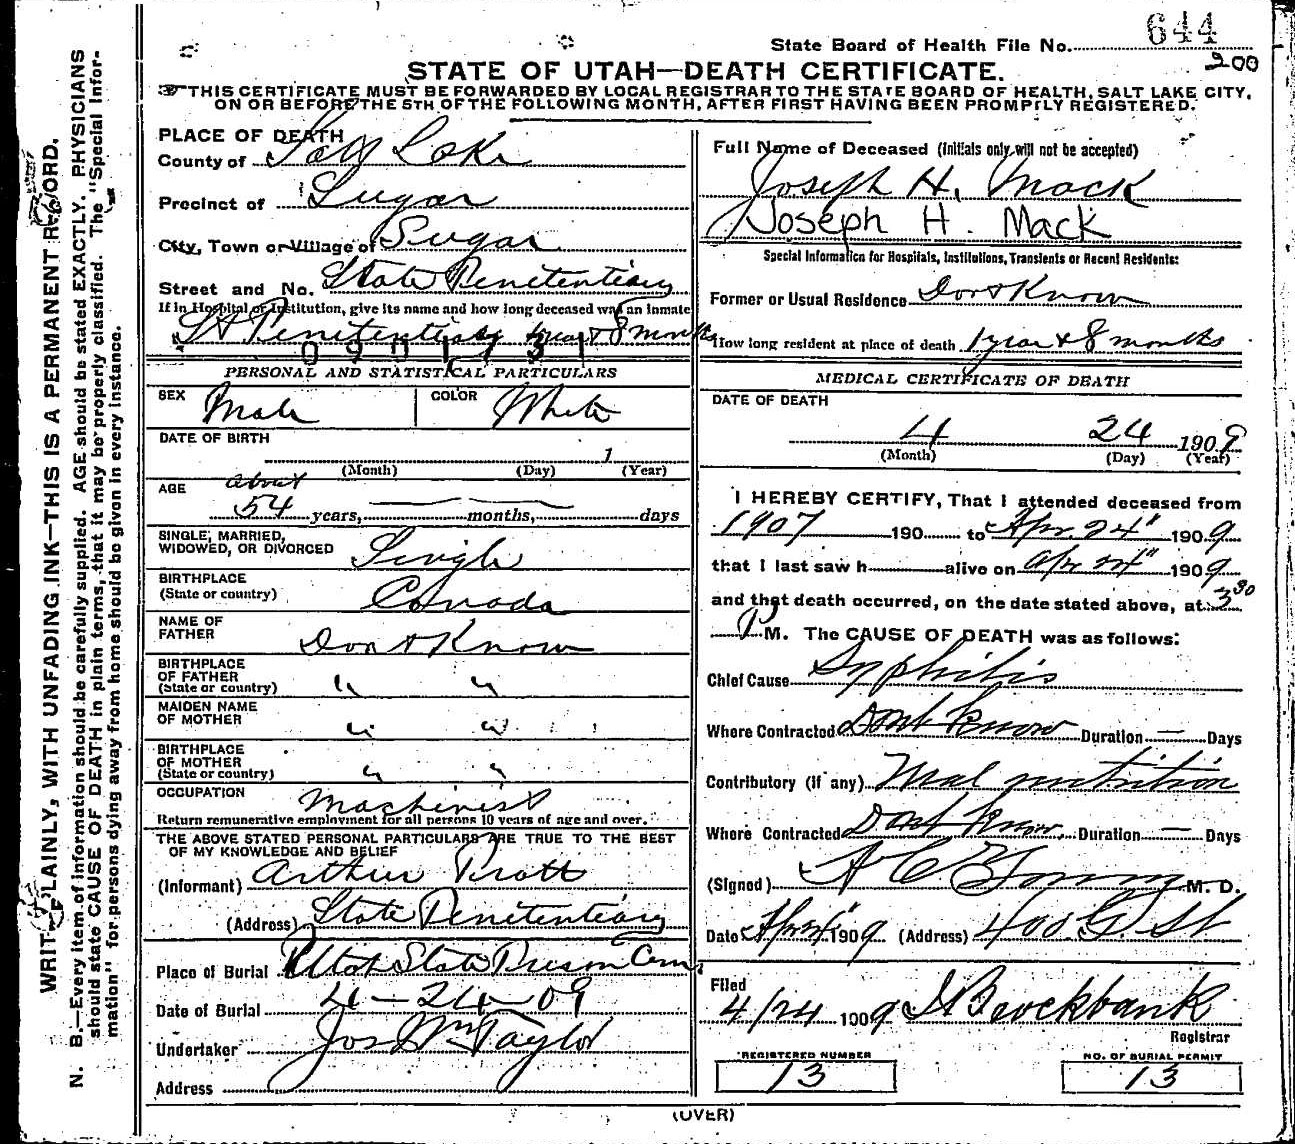 644
State Board of Health File No.
200
STATE OF UTAH—DEATH CERTIFICATE.
THIS CERTIFICATE MUST BE FORWARDED BY LOCAL REGISTRAR TO THE STATE BOARD OF HEALTH, SALT LAKE CITY,
ON OR BEFORE THE 5TH OF THE FOLLOWING MONTH, AFTER FIRST HAVING BEEN PROMPTLY REGISTERED.
WRITE PLAINLY, WITH UNFADING INK—THIS IS A PERMANENT RECORD.
N. B.—Every item of information should be carefully supplied. AGE should be stated EXACTLY. PHYSICIANS
should state CAUSE OF DEATH in plain terms, that it may be properly classified. The "Special Infor-
mation" for persons dying away from home should be given in every instance.
PLACE OF DEATH
County of Salt Lake
Precinct of Sugar
City, Town or Village of Sugar
Street and No. State Penitentiary
If in Hospital or Institution, give its name and how long deceased was an inmate
St Penitentiary 1 year & 8 months
PERSONAL AND STATISTICAL PARTICULARS
SEX Male COLOR White
DATE OF BIRTH
1
(Month) (Day) (Year)
AGE about
54 years, — months, — days
SINGLE, MARRIED,
WIDOWED, OR DIVORCED Single
BIRTHPLACE
(State or country) Canada
NAME OF
FATHER Dont Know
BIRTHPLACE
OF FATHER " "
(State or country)
MAIDEN NAME
OF MOTHER " "
BIRTHPLACE
OF MOTHER " "
(State or country)
OCCUPATION Machinist
Return remunerative employment for all persons 10 years of age and over.
THE ABOVE STATED PERSONAL PARTICULARS ARE TRUE TO THE BEST
OF MY KNOWLEDGE AND BELIEF
(Informant) Arthur Pratt
(Address) State Penitentiary
Place of Burial Utah State Prison Cem
Date of Burial 4-24-09
Undertaker Jos Wm Taylor
Address
Full Name of Deceased (Initials only will not be accepted)
Joseph H. Mack
Joseph H. Mack
Special Information for Hospitals, Institutions, Transients or Recent Residents:
Former or Usual Residence Dont Know
How long resident at place of death 1 year & 8 months
MEDICAL CERTIFICATE OF DEATH
DATE OF DEATH
4 24 1909
(Month) (Day) (Year)
I HEREBY CERTIFY, That I attended deceased from
1907 190 to Apr. 24" 1909
that I last saw h alive on Apr 24" 1909
and that death occurred, on the date stated above, at 3 30
P M. The CAUSE OF DEATH was as follows:
Chief Cause Syphilis
Where Contracted Dont know Duration — Days
Contributory (if any) Mal nutrition
Where Contracted Dont know. Duration — Days
(Signed) A C Young M. D.
Date Apr 24" 1909 (Address) 400 G. St
Filed
4/24 1909 Brockbank
Registrar
REGISTERED NUMBER
13
NO. OF BURIAL PERMIT
13
(OVER)